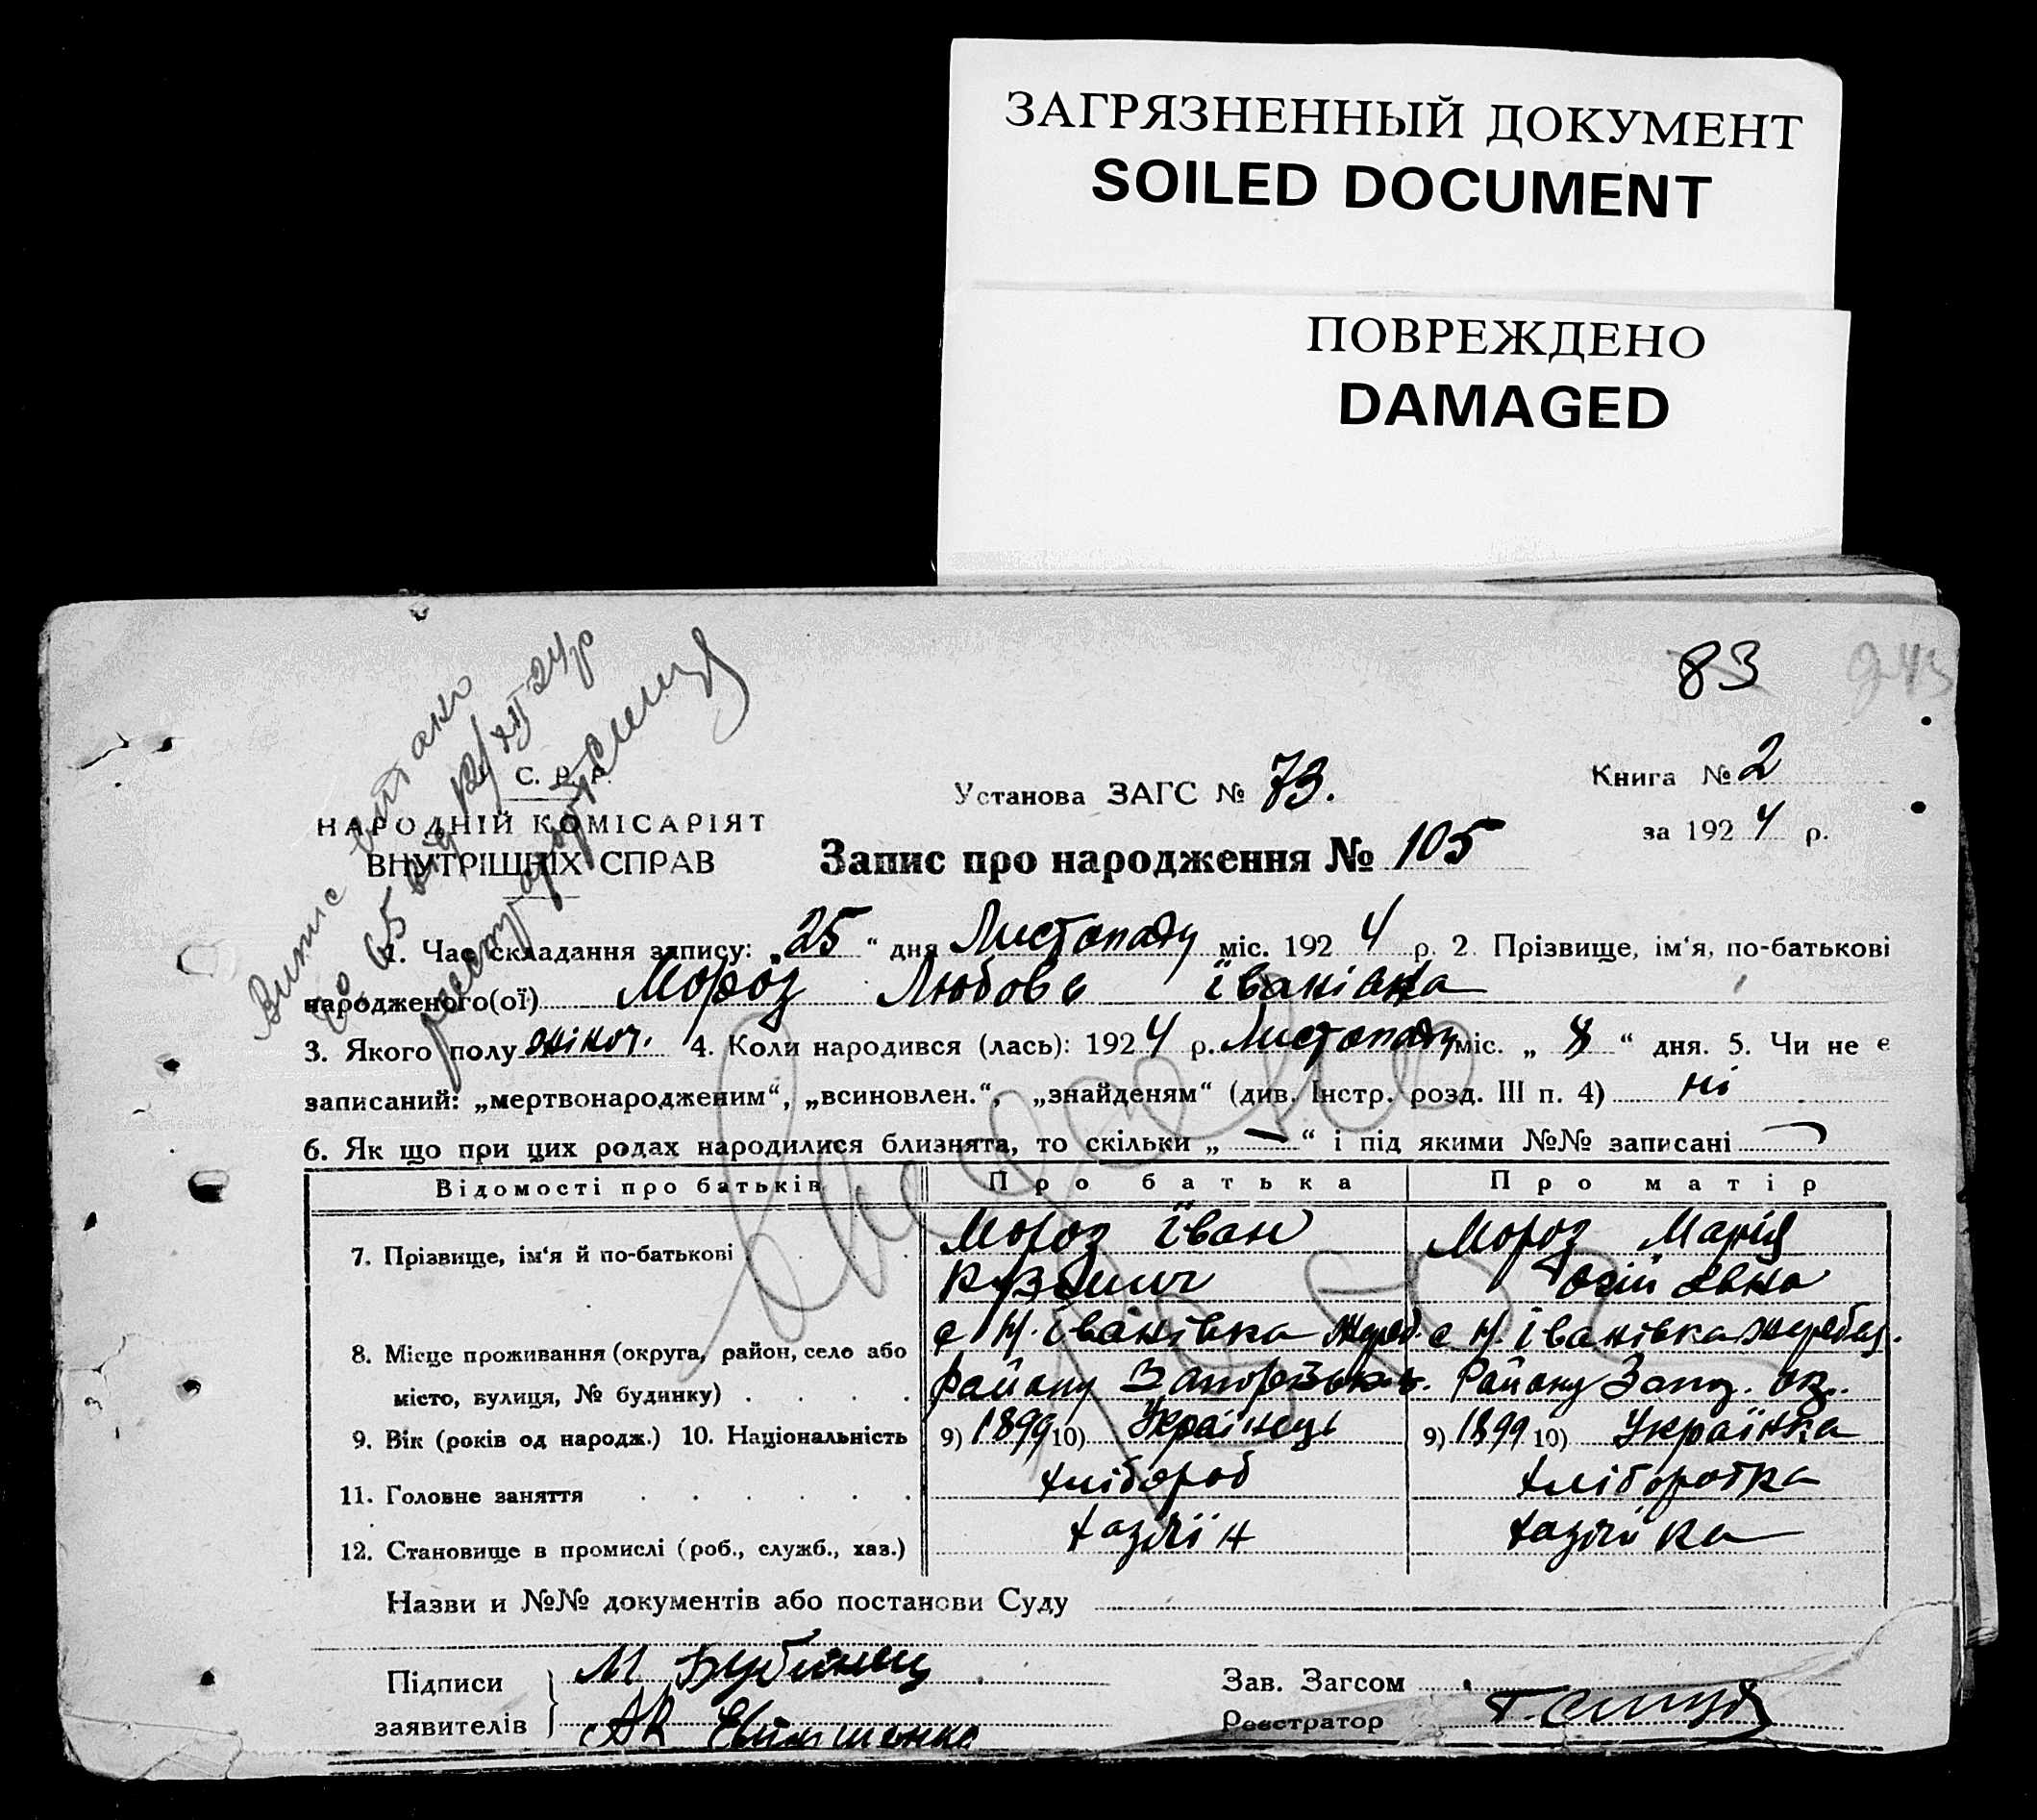 ЗАГРЯЗНЕННЫЙ ДОКУМЕНТ
SOILED DOCUMENT
ПОВРЕЖДЕНО
DAMAGED
83
Випис видано
С. Р. Р.
НАРОДНІЙ КОМІСАРІЯТ
ВНУТРІШНІХ СПРАВ
Установа ЗАГС № 73.
Книга № 2
за 1924 р.
Запис про народження № 105
1. Час складання запису: „25“ дня Листопаду міс. 1924 р. 2. Прізвище, ім‘я, по-батькові
народженого(ої) Мороз Любовь Іванівна
3. Якого полу жіноч. 4. Коли народився (лась): 1924 р. Листопаду міс. „ “ дня. 5. Чи не є
записаний: „мертвонародженим“, „всиновлен.“, „знайденям“ (див. Інстр. розд. III п. 4) ні
6. Як що при цих родах народилися близнята, то скільки „—“ і під якими №№ записані —
Відомості про батьків Про батька Про матір
7. Прізвище, ім‘я й по-батькові Мороз Іван Мороз Марія
Кузьмич
8. Місце проживання (округа, район, село або с Н. Іванівка Жереб. с Н. Іванівка Жеребец.
місто, вулиця, № будинку) . . . . Району Запорізьк. Району Запоз. ок.
9. Вік (років од народж.) 10. Національність 9) 1899 10) Українець 9) 1899 10) Українка
11. Головне заняття . . . . . . хлібороб хліборобка
12. Становище в промислі (роб., служб., хаз.) хазяїн хазяйка
Назви и №№ документів або постанови Суду
Підписи М
заявителів АК
Зав. Загсом
Реєстратор